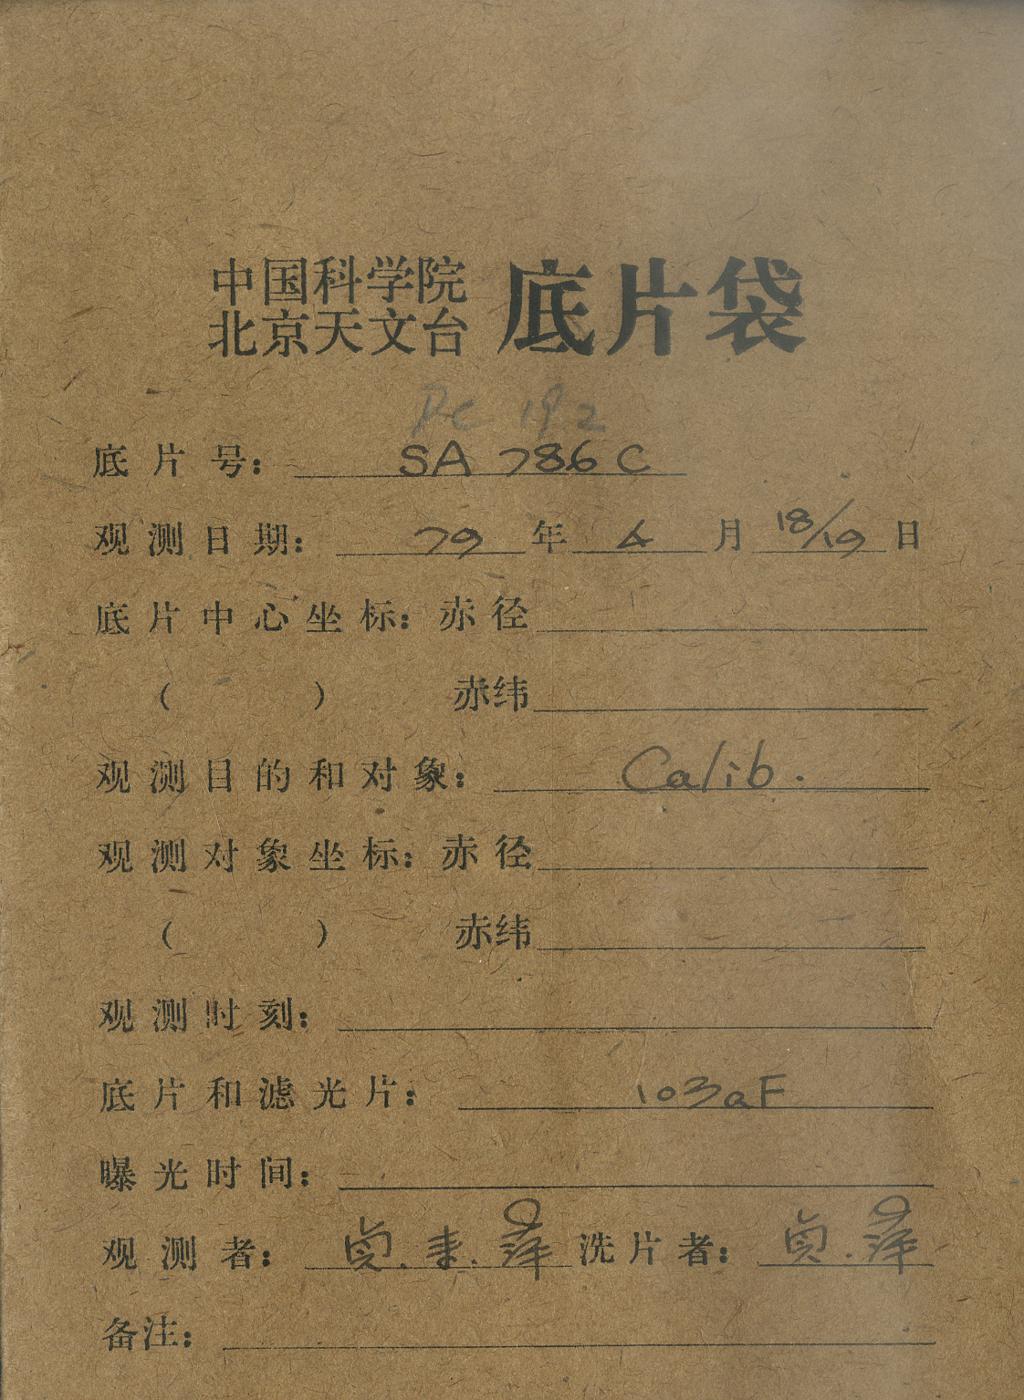 中国科学院
北京天文台 底片袋
Pc 19.2
底片号： SA 786 C
观测日期： 79 年 4 月 18/19 日
底片中心坐标：赤径
（ ） 赤纬
观测目的和对象： Calib.
观测对象坐标：赤径
（ ） 赤纬
观测时刻：
底片和滤光片： 103aF
曝光时间：
观测者： 贞. 洗片者： 贞.
备注：